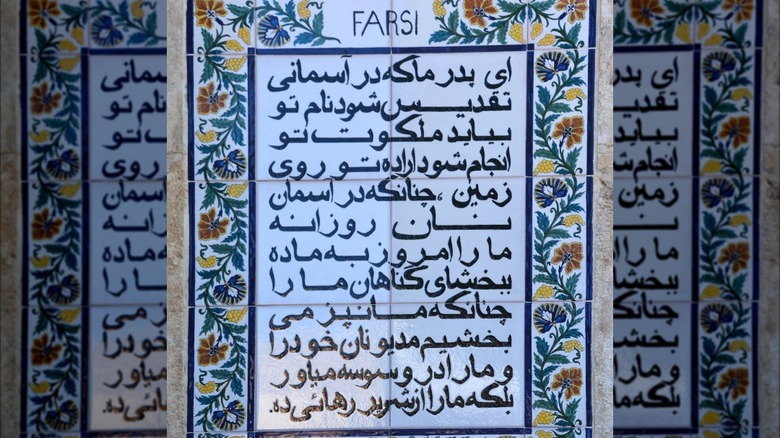 FARSI
ای پدر ماکه در آسمانی
تقدیس شود نام تو
بیاید ملکوت تو
انجام شود اراده تو روی
زمین ، چنانکه در آسمان
نان روزانه
ما را امروز به ماده
ببخشای گناهان ما را
چنانکه ما نیز می
بخشیم مدیونان خود را
و ما را در وسوسه میاور
بلکه ما را از شریر رهائی ده.